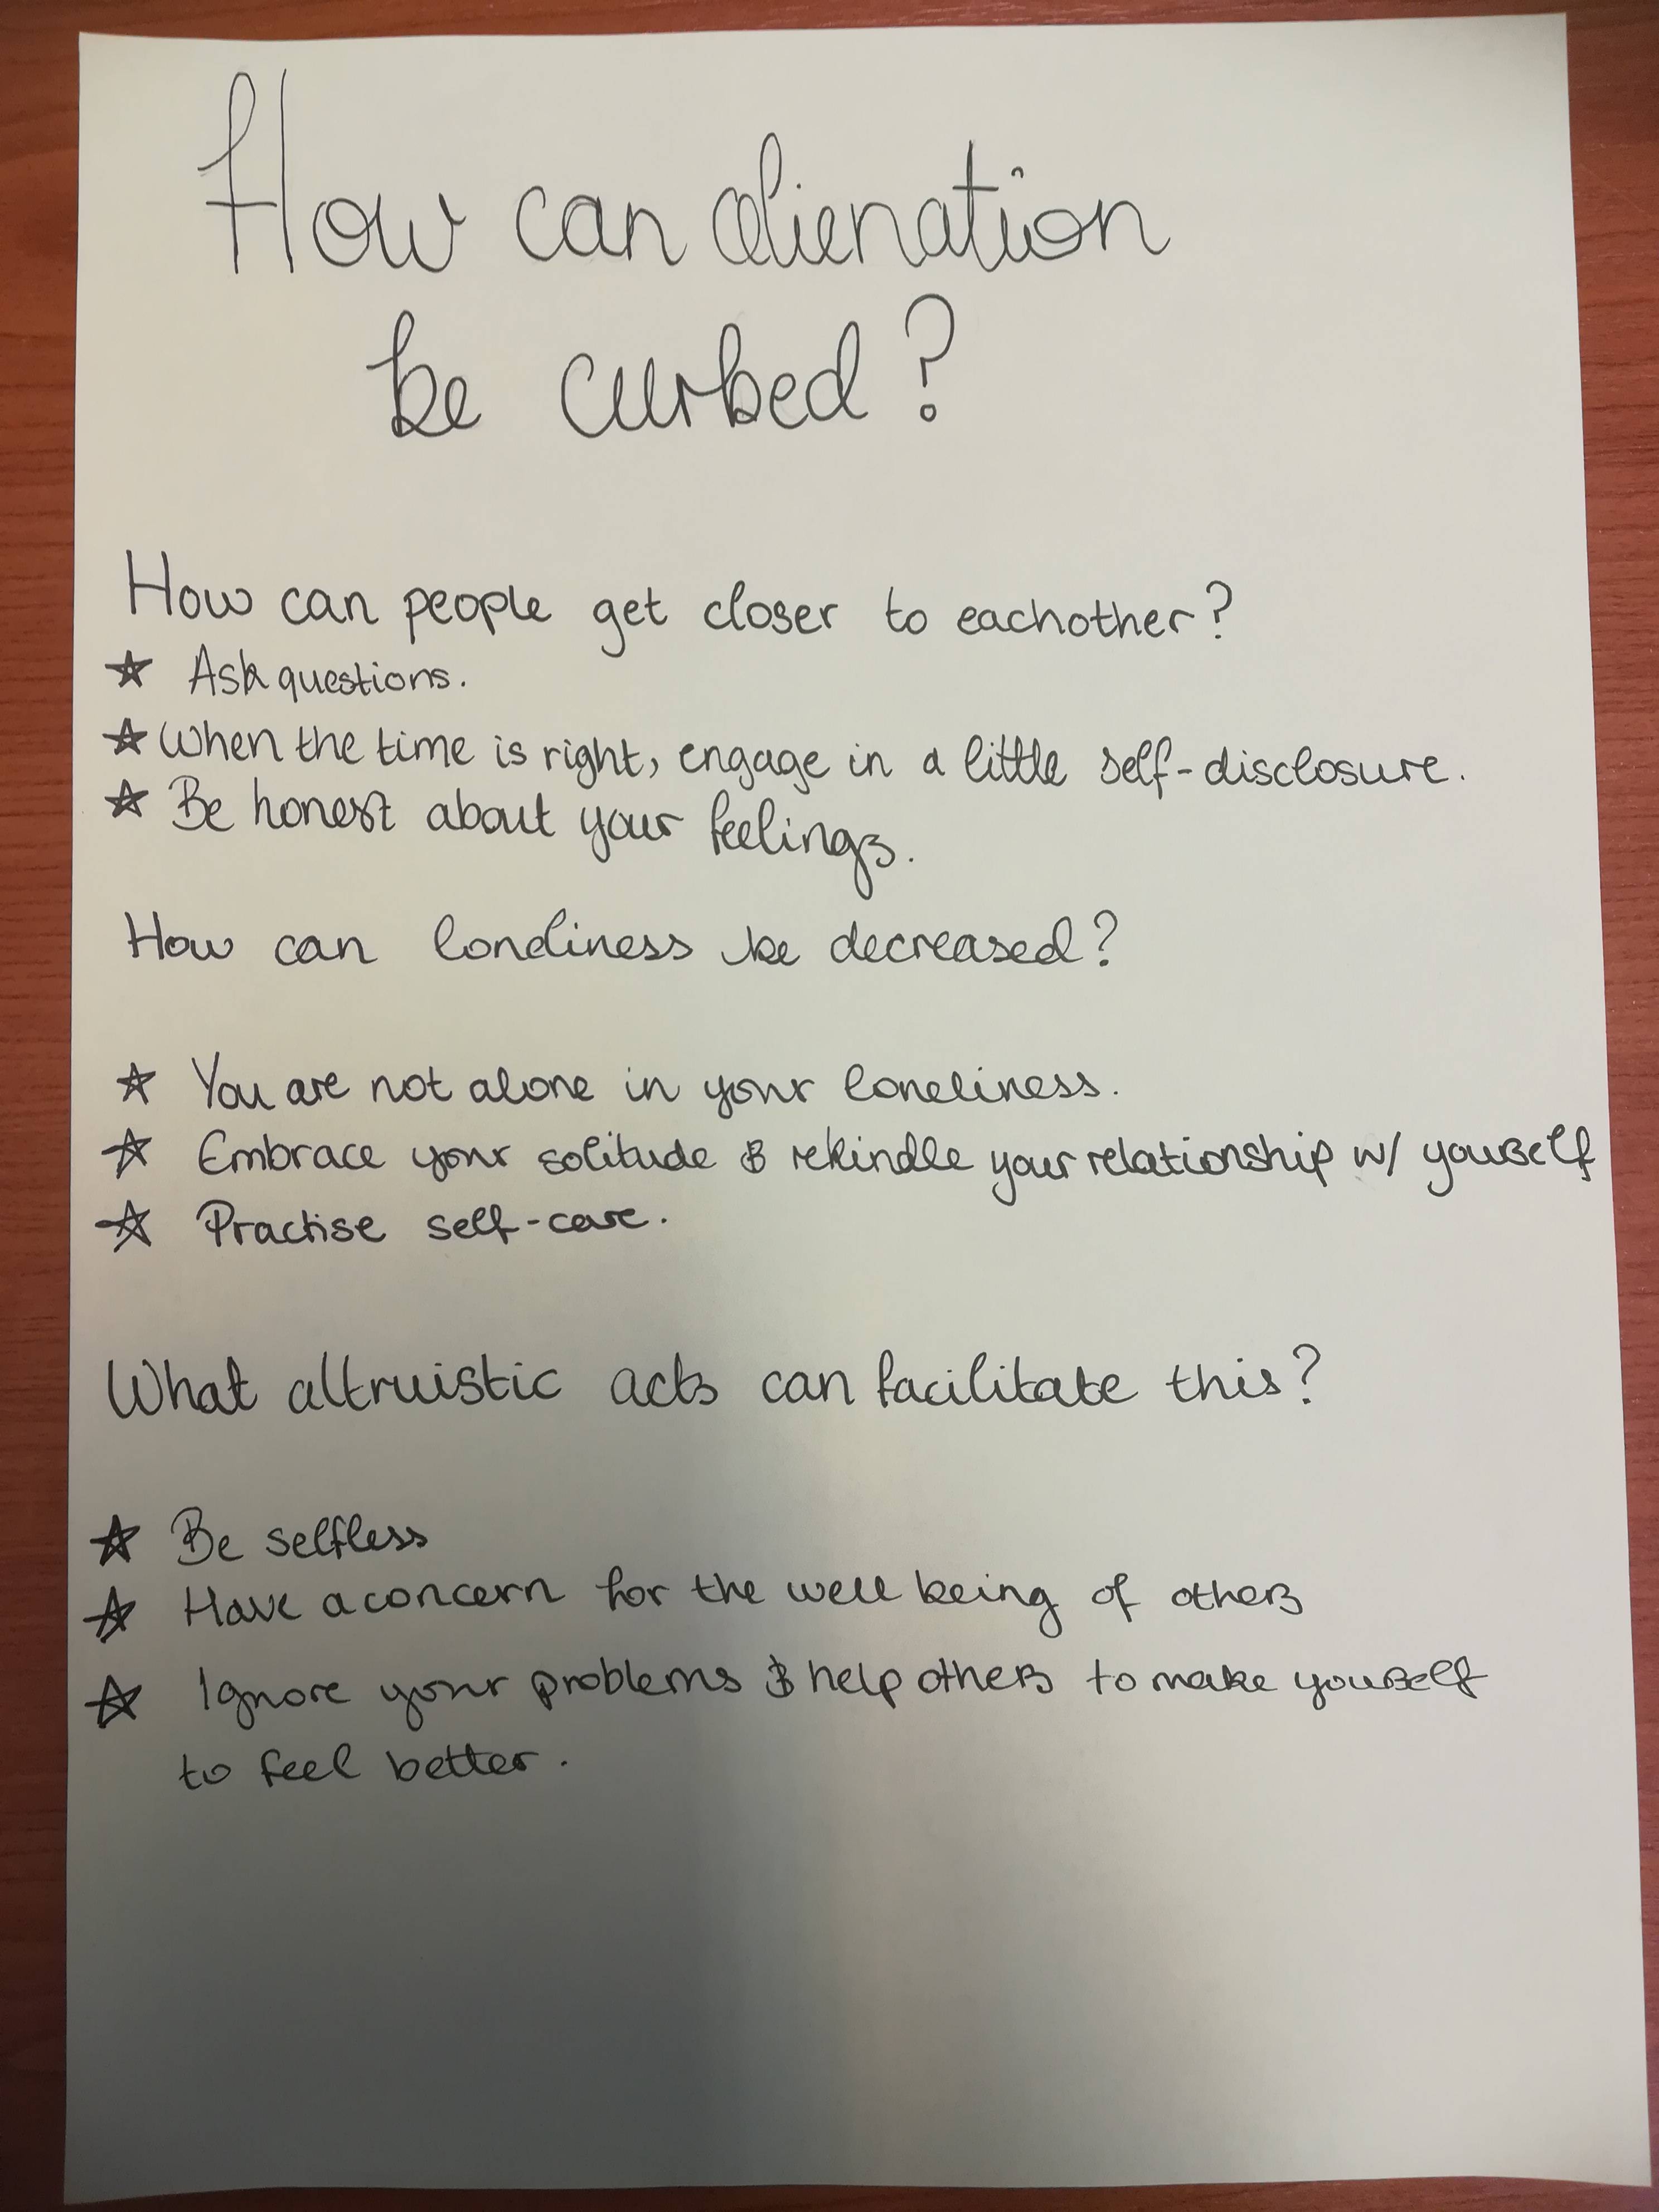 How can alienation
be curbed?
How can people get closer to eachother?
☆ Ask questions.
☆ When the time is right, engage in a little self-disclosure.
☆ Be honest about your feelings.
How can loneliness be decreased?
☆ You are not alone in your loneliness.
☆ Embrace your solitude & rekindle your relationship w/ yourself
☆ Practise self-care.
What altruistic acts can facilitate this?
☆ Be selfless
☆ Have a concern for the well being of others
☆ Ignore your problems & help others to make yourself
to feel better.